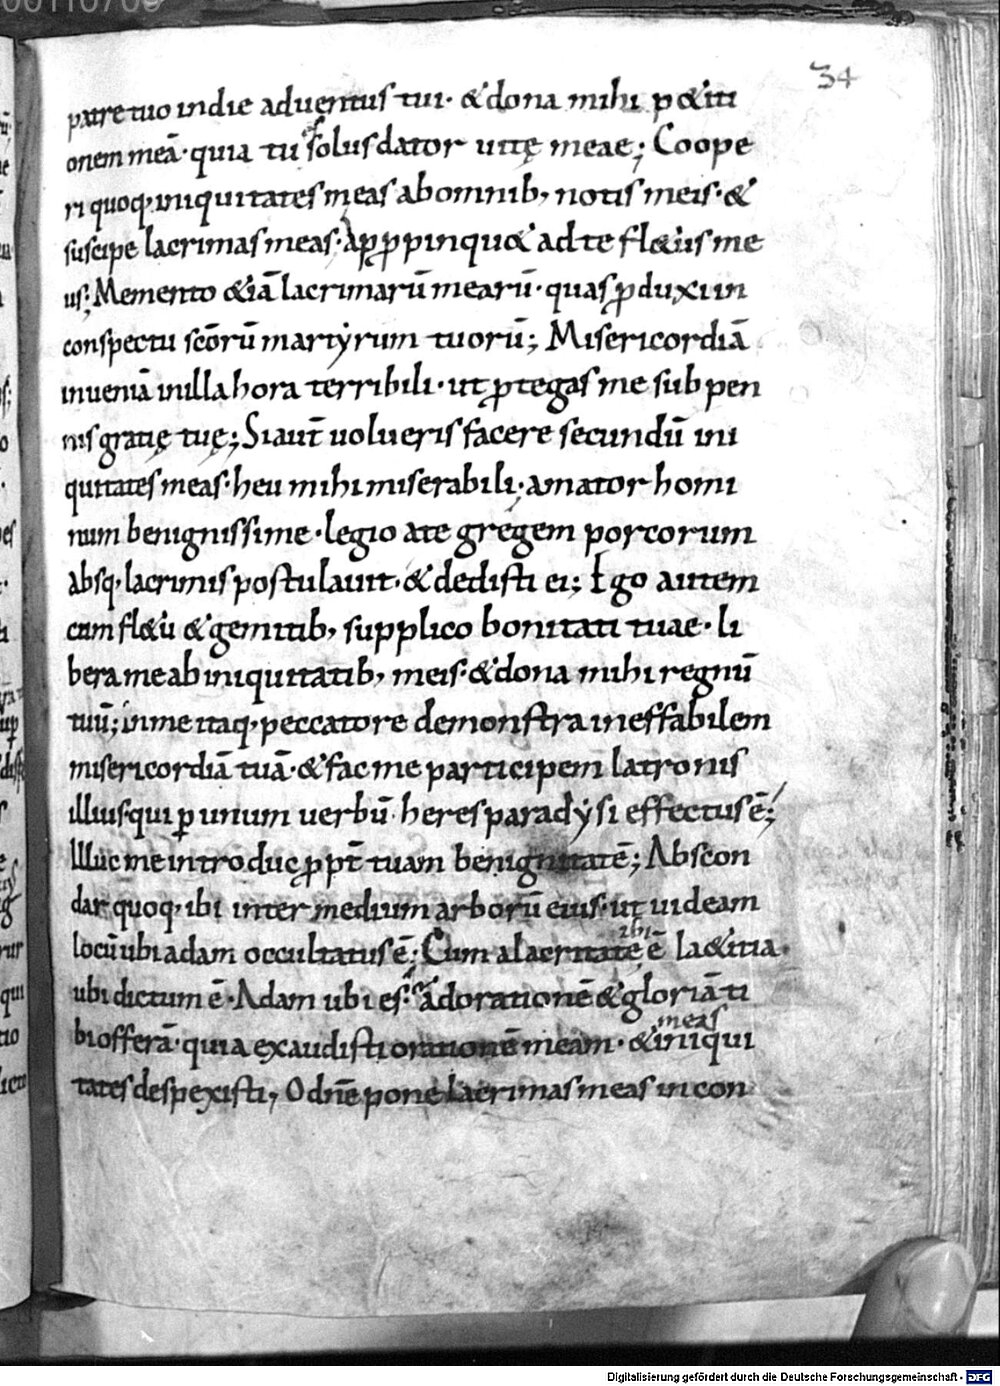 00110709
34
patre tuo in die aduentus tui· & dona mihi p&iti
onem meā· quia tu es solus dator uitę meae; Coope
ri quoq; iniquitates meas ab omnib; notis meis· &
suscipe lacrimas meas· Appropinqu& ad te fl&us me
us; Memento &iā lacrimarū mearū· quas produxi in
conspectu scōrū martyrum tuorū; Misericordiā
inueniā in illa hora terribili· ut protegas me sub pen
nis gratię tuę; Si aut̄ uolueris facere secundū ini
quitates meas· heu mihi miserabili· amator homi
num benignissime· legio a te gregem porcorum
absq; lacrimis postulauit· & dedisti ei; Ego autem
cum fl&u & gemitib; supplico bonitati tuae· li
bera me ab iniquitatib; meis· & dona mihi regnū
tuū; in me itaq; peccatore demonstra ineffabilem
misericordiā tuā· & fac me participem latronis
illius· qui ꝑ unum uerbū· heres paradysi effectus ē;
Illuc me introduc ꝓpt̄ tuam benignitatē; Abscon
dar quoq; ibi inter medium arborū eius· ut uideam
locū ubi adam occultatus ē; Cum alacritate ibi ē la&itia·
ubi dictum ē· Adam ubi es; adorationē & gloriā ti
bi offerā· quia exaudisti orationē meam· & meas iniqui
tates despexisti, O dn̄e pone lacrimas meas in con
Digitalisierung gefördert durch die Deutsche Forschungsgemeinschaft - DFG